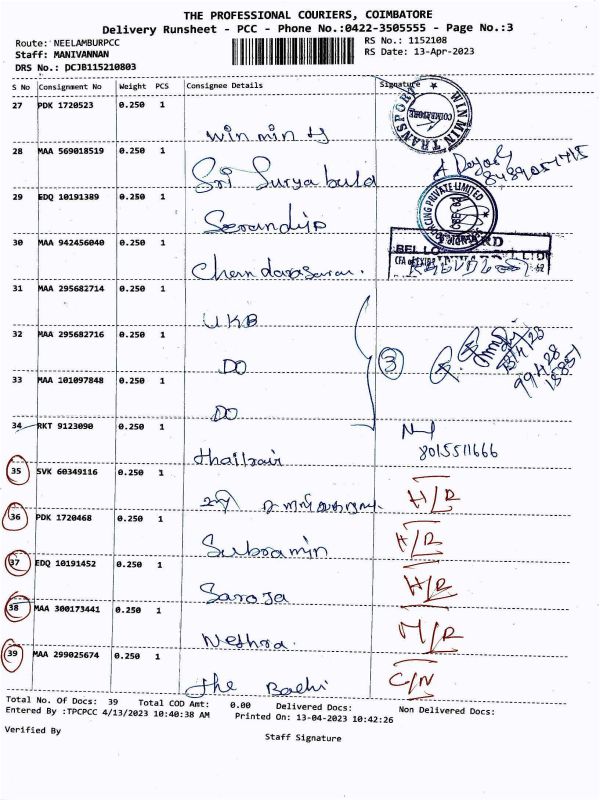 THE PROFESSIONAL COURIERS, COIMBATORE
Delivery Runsheet - PCC - Phone No.:0422-3505555 - Page No.:3
Route: NEELAMBURPCC
RS No.: 1152108
Staff: MANIVANNAN
RS Date: 13-Apr-2023
DRS No.: DCJB115210803
S No Consignment No Weight PCS Consignee Details Signature
27 PDK 1720523 0.250 1
win min
WINMIN TRANSPORT
COIMBATORE
28 MAA 569018519 0.250 1
Sri Surya bula
29 EDQ 10191389 0.250 1
PRIVATE LIMITED
30 MAA 942456040 0.250 1
31 MAA 295682714 0.250 1
UKB
32 MAA 295682716 0.250 1
DO
3
33 MAA 101097848 0.250 1
DO
34 RKT 9123090 0.250 1
8015511666
35 SVK 60349116 0.250 1
H/R
36 PDK 1720468 0.250 1
Subramin
H/R
37 EDQ 10191452 0.250 1
Saroja
H/R
38 MAA 300173441 0.250 1
Nethra.
M/R
39 MAA 299025674 0.250 1
The
C/N
Total No. Of Docs: 39 Total COD Amt: 0.00 Delivered Docs: Non Delivered Docs:
Entered By :TPCPCC 4/13/2023 10:40:38 AM Printed On: 13-04-2023 10:42:26
Verified By
Staff Signature